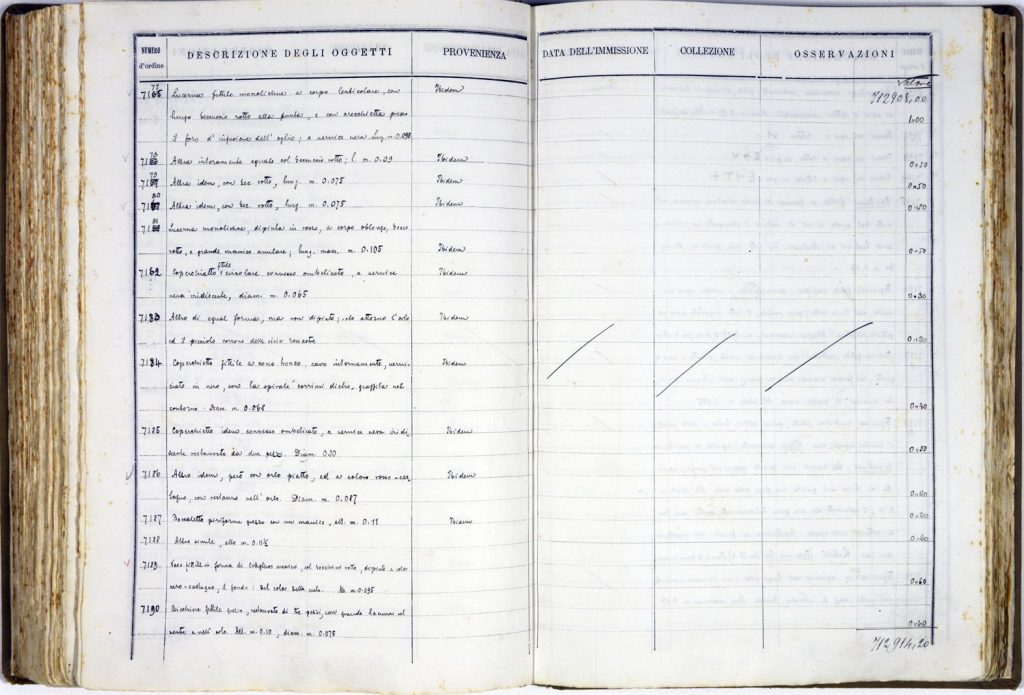 NUMERO d'ordine DESCRIZIONE DEGLI OGGETTI PROVENIENZA DATA DELL'IMMISSIONE COLLEZIONE OSSERVAZIONI
Valore
712908,00
Lucerna fittile monolichne a corpo lenticolare, con Ibidem
lungo beccuccio rotto alla punta, e con orecchietta presso 1.00
il foro d'infusione dell'oglio; a vernice nera lung. m. 0.095
Altra interamente eguale col beccuccio rotto; l. m. 0.09 Ibidem 0.50
Altra idem, con bec. rotto, lung. m. 0.075 Ibidem 0.50
Altra idem, con bec. rotto, lung. m. 0.075 Ibidem
Lucerna monolichne, dipinta in rosso, a corpo oblongo, becco
rotto, e grande manico anulare; lung. mass. m. 0.105 Ibidem 0.50
Coperchietto fittile circolare connesso ombelicato, a vernice Ibidem
nera iridiscente, diam. m. 0.065 0.30
7183 Altro di egual forma, ma non dipinto; attorno l'orlo Ibidem
ed il piccolo
7184 Coperchietto fittile a cono tronco, cavo internamente, verni- Ibidem
ciato in nero, con la spirale corrimi dietro, graffita nel
contorno. Diam. m. 0.068 0.30
7185 Coperchietto idem connesso ombelicato, a vernice nera iridi- Ibidem
scente restaurato da due pezzi. Diam. 0.20 0.50
7186 Altro idem, però con orlo piatto, ed a colore rosso-cas- Ibidem
tagno, con restauro nell'orlo. Diam. m. 0.087
7187 Boccaletto periforme grezzo con un manico, alt. m. 0.11 Ibidem 0.20
7188 Altro simile, alto m. 0.11½ 0.20
7189 Vaso fittile in forma di col beccuccio rotto, dipinto a color
nero-castagno, il fondo è del color della creta. m. 0.095 0.60
7190 Bicchiere fittile grezzo, restaurato di tre pezzi, con grande lacuna nel
ventre e nell'orlo. Alt. m. 0.10, diam. m. 0.075 0.60
712914,20